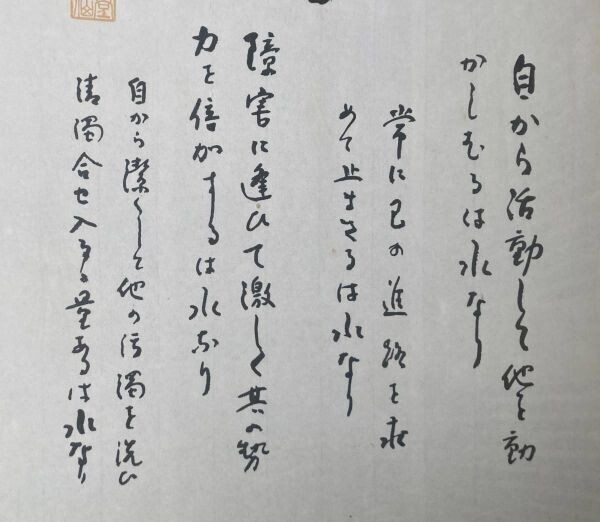 自から活動して他を動
かしむるは水なり
常に己の進路を求
めて止まさるは水なり
障害に逢ひて激しく其の勢
力を倍加するは水なり
自から潔くして他の汚濁を洗ひ
清濁合せ入るる量あるは水なり